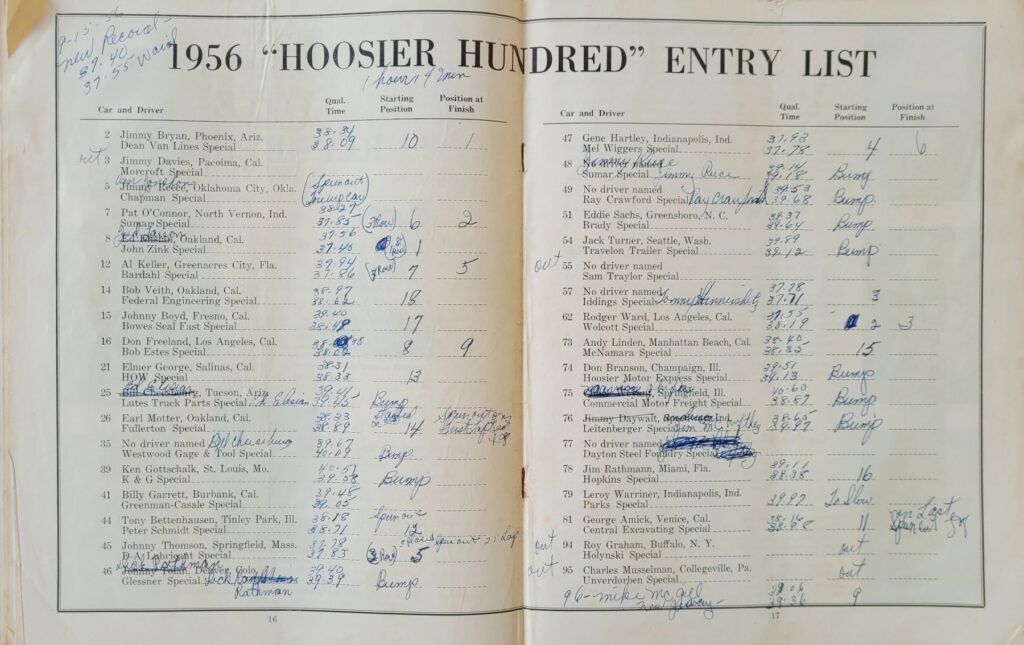 9-15-56
new Record-
37.40
37.55 Ward
1956 "HOOSIER HUNDRED" ENTRY LIST
1 hour 42 min
Car and Driver
Qual. Time
Starting Position
Position at Finish
2 Jimmy Bryan, Phoenix, Ariz. 38.34
Dean Van Lines Special 38.09 10 1
3 Jimmy Davies, Pacoima, Cal.
Morcroft Special
5 Jimmy Reece, Oklahoma City, Okla. (Spin out
Chapman Special
38.27
7 Pat O'Connor, North Vernon, Ind. 37.85 (3 Row) 6 2
Sumar Special
37.56
8 Ed Elisian, Oakland, Cal.
John Zink Special 37.40 1
12 Al Keller, Greenacres City, Fla. 37.94
Bardahl Special 37.86 7 5
14 Bob Veith, Oakland, Cal. 38.97
Federal Engineering Special 38.62 18
15 Johnny Boyd, Fresno, Cal. 39.40
Bowes Seal Fast Special 17
16 Don Freeland, Los Angeles, Cal.
Bob Estes Special 38.02 8 9
21 Elmer George, Salinas, Cal. 38.31
HOW Special 38.35 13
Ed Elisian
25 Bill Cheesbourg, Tucson, Ariz.
Lutes Truck Parts Special Ed Elisian Bump
26 Earl Motter, Oakland, Cal. 38.33
Fullerton Special 38.89 14 Spin out on
35 No driver named 39.67
Westwood Gage & Tool Special 40.09 Bmp.
39 Ken Gottschalk, St. Louis, Mo. 40.57
K & G Special 39.58 Bump
41 Billy Garrett, Burbank, Cal. 39.45
Greenman-Casale Special 39.05
44 Tony Bettenhausen, Tinley Park, Ill. 38.78 Spin out
Peter Schmidt Special 38.71 12
45 Johnny Thomson, Springfield, Mass. 37.78 Spin out
D-A Lubricant Special 37.83 (3 Row) 5
Dick Rathman
46 Johnny Tolan, Denver, Colo. 39.40
Glessner Special 39.39 Bump
Rathman
16
Car and Driver
Qual. Time
Starting Position
Position at Finish
47 Gene Hartley, Indianapolis, Ind. 37.93
Mel Wiggers Special 37.78 4 6
48 No driver named 39.14
Sumar Special Jimmy Reece 39.18 Bump
49 No driver named 39.53
Ray Crawford Special Ray Crawford 39.68 Bump.
51 Eddie Sachs, Greensboro, N. C. 39.37
Brady Special 39.64 Bump
54 Jack Turner, Seattle, Wash. 39.89
Travelon Trailer Special 39.12 Bump
out
55 No driver named
Sam Traylor Special
57 No driver named 37.78
Iddings Special Tommy Hinnershitz 37.71 3
62 Rodger Ward, Los Angeles, Cal. 37.55
Wolcott Special 38.19 2 3
73 Andy Linden, Manhattan Beach, Cal. 38.40
McNamara Special 38.35 15
74 Don Branson, Champaign, Ill. 39.51
Hoosier Motor Express Special 39.13 Bump
75 40.60
Commercial Motor Freight Special 38.87 Bump
76 Jimmy Daywalt, Ind. 38.65
Leitenberger Special 39.97 Bump
77 No driver named
Dayton Steel Foundry Special
78 Jim Rathmann, Miami, Fla. 39.11
Hopkins Special 38.38 16
79 Leroy Warriner, Indianapolis, Ind.
Parks Special 39.97 To Slow
81 George Amick, Venice, Cal. 38.14 on Last
Central Excavating Special 11 Spin out
out
94 Roy Graham, Buffalo, N. Y.
Holynski Special out
out
95 Charles Musselman, Collegeville, Pa.
Unverdorben Special out
96- mike mc gill 39.06
new Jersey- 39.36 9
17